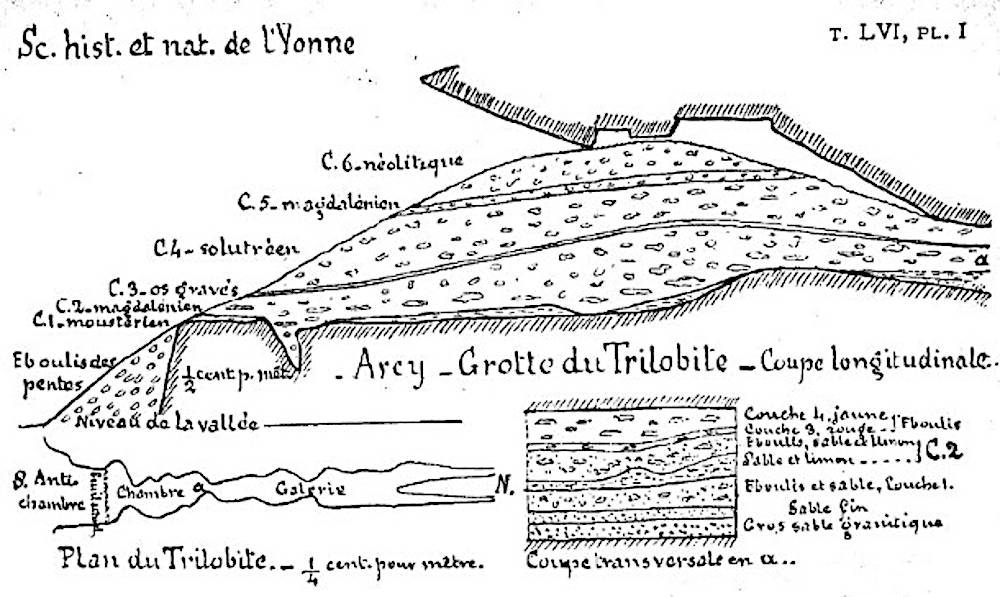 Sc. hist. et nat. de l'Yonne
T. LVI, PL. I
C. 6 - néolitique
C. 5 - magdalénien
C 4 - solutréen
C. 3 - os gravés
C. 2 - magdalénien
C. 1 - moustérien
Eboulis des
pentes
1/2 cent p. mèt.
α
Niveau de la vallée
- Arcy - Grotte du Trilobite - Coupe longitudinale..
S. Anti-
chambre
Chambre
Galerie
N.
Plan du Trilobite. - 1/4 cent. pour mètre.
Couche 4, jaune
Couche 3, rouge - Eboulis
Eboulis, sable et limon
Sable et limon ..... C. 2
Eboulis et sable, Couche 1.
Sable fin
Gros sable granitique
Coupe transversale en α..